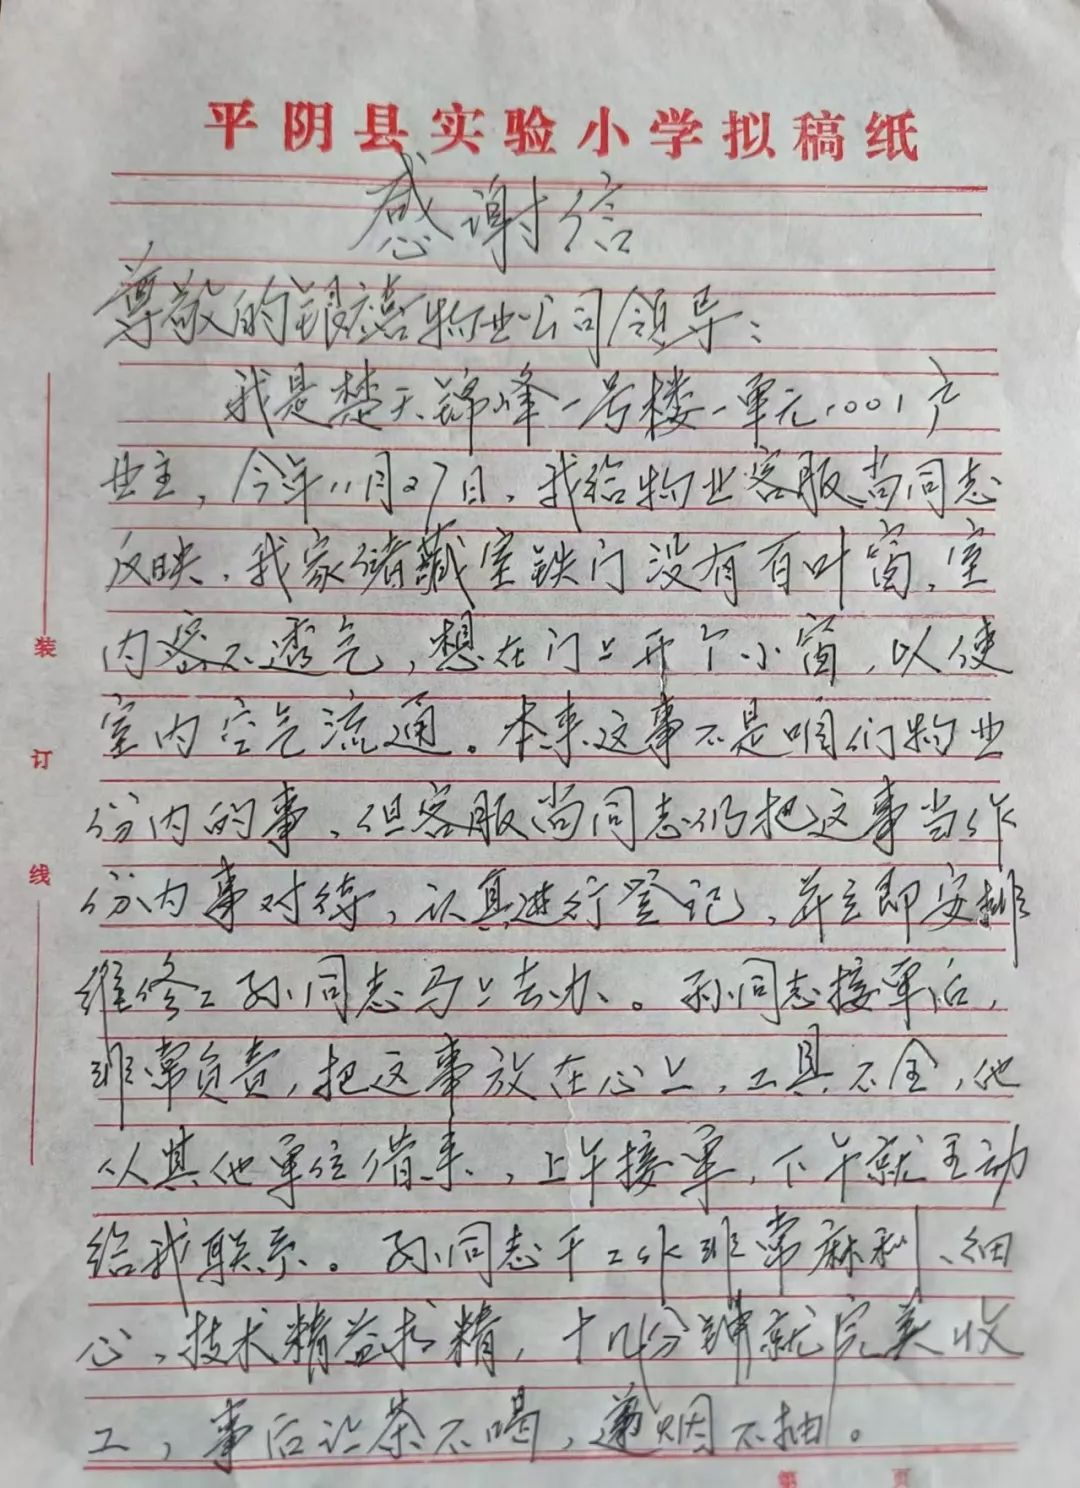 平阴县实验小学拟稿纸
感谢信
尊敬的银禧物业公司领导：
我是楚天锦峰一号楼一单元1001户
业主，今年11月27日，我给物业客服尚同志
反映，我家储藏室铁门没有百叶窗，室
内密不透气，想在门上开个小窗，以使
室内空气流通。本来这事不是咱们物业
份内的事，但客服尚同志仍把这事当作
份内事对待，认真进行登记，并立即安排
维修工孙同志马上去办。孙同志接单后，
非常负责，把这事放在心上，工具不全，他
从其他单位借来，上午接单，下午就主动
给我联系。孙同志干工作非常麻利、细
心、技术精益求精，十几分钟就完美收
工，事后让茶不喝，递烟不抽。
装
订
线
第 页